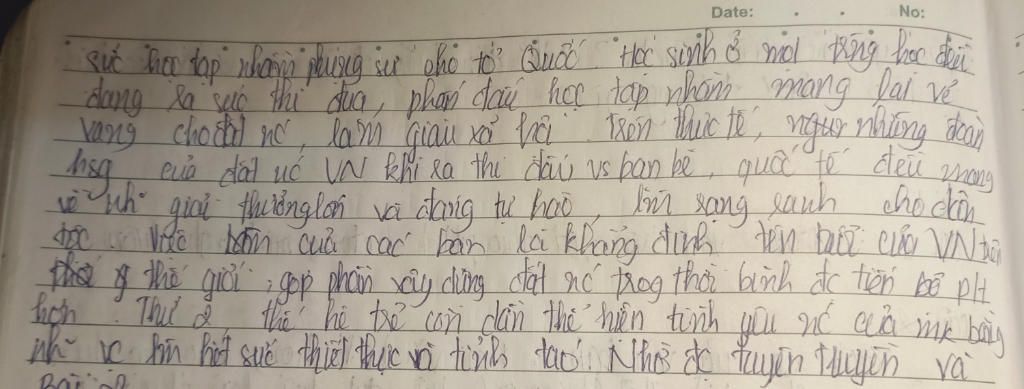 Date: No:
sức học tập nhằm phụng sự cho tổ Quốc. Học sinh ở mọi trường học đều
đang ra sức thi đua, phấn đấu học tập nhằm mang lại vẻ
vang cho đất nc, làm giàu xã hội. Trên thực tế, ngay những đoàn
hsg của đất nc VN khi ra thi đấu vs bạn bè quốc tế đều mang
về nh giải thưởng lớn và đáng tự hào, làm rạng danh cho dân
tộc. Việc làm của các bạn lại khẳng định tên tuổi của VN trên
thế giới, góp phần xây dựng đất nc trog thời bình đc tiến bộ PH
hơn. Thứ 2 thế hệ trẻ còn dần thể hiện tình yêu nc của mk bằng
nh vc làm hết sức thiết thực và tỉnh táo. Nhờ đc tuyên truyền và